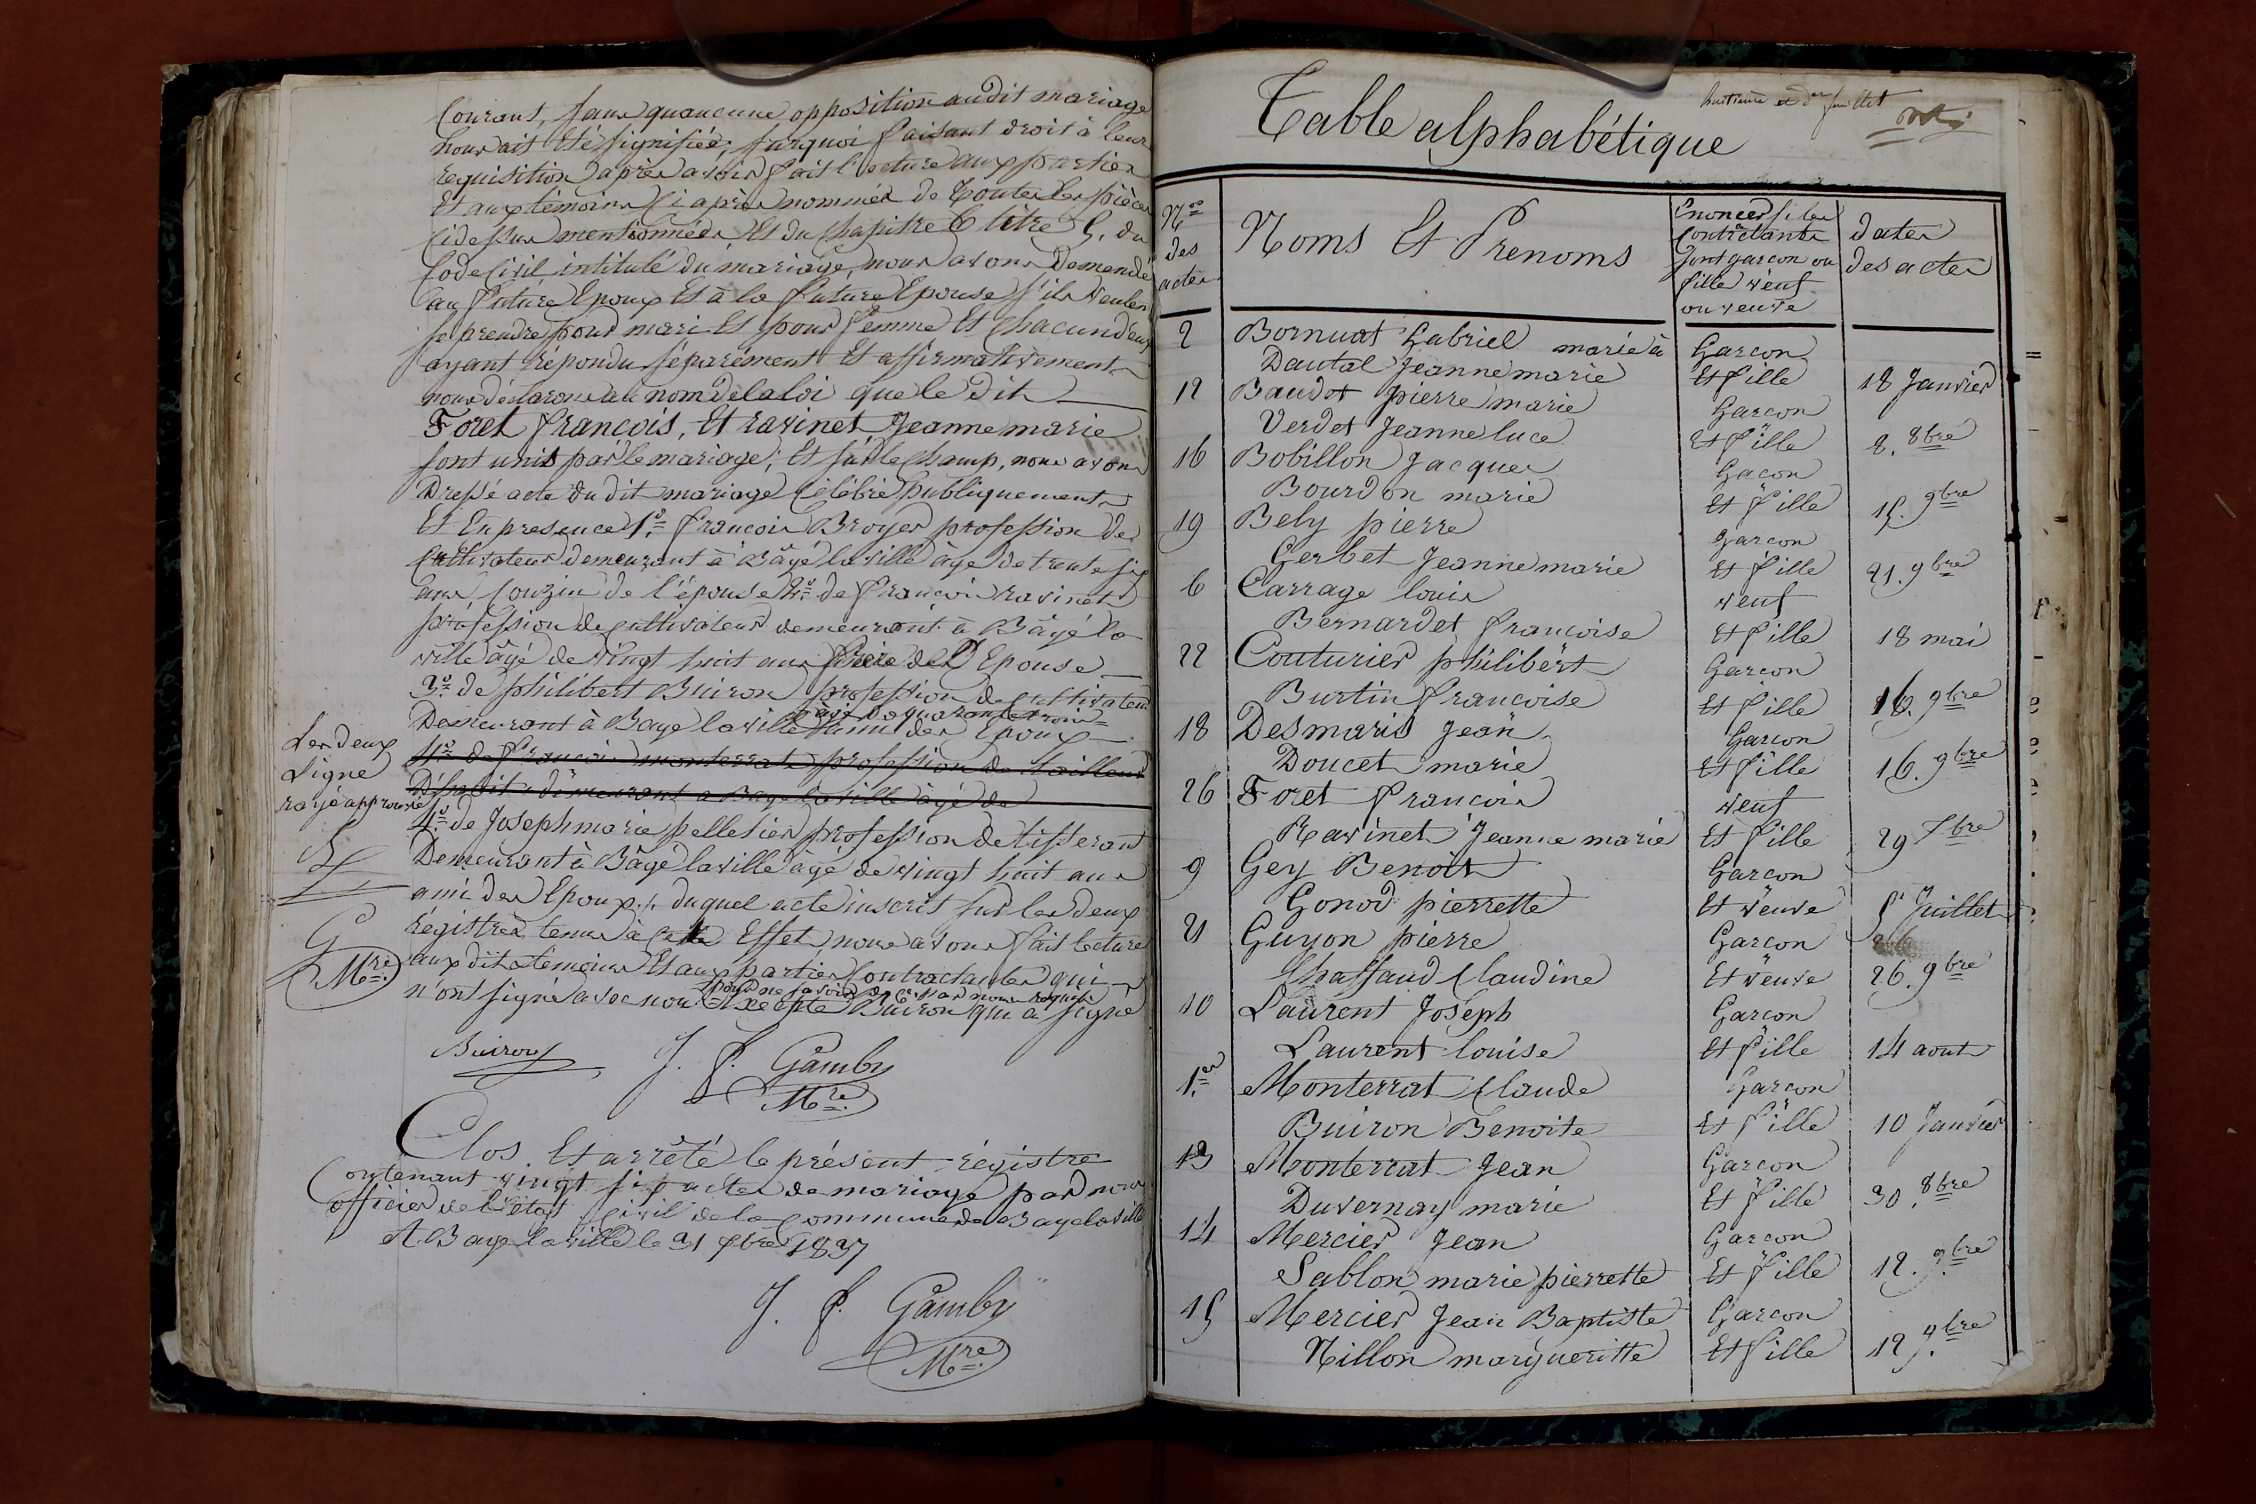 Courant, sans quaucune opposition audit mariage
nous ait été signifiée; surquoi faisant droit à leur
requisition après avoir fait lecture aux parties
Et aux témoins ci après nommés de toutes les pièces
cidessus mentionnées Et du chapitre 6 titre 5. du
Code Civil intitulé du mariage, nous avons Demandé
au future Epoux Et à la future Epouse s'ils veulen
se prendre pour mari Et pour femme Et chacun d'eux
ayant répondu séparément Et affirmativement
nous déclarons au nom de la loi que le dit
Foret françois, Et ravinet Jeanne marie
sont unis par le mariage; Et sur le champ, nous avons
Dressé acte du dit mariage célébré publiquement
Et En presence 1.º francois Broyer profession de
Cultivateur demeurant à Bâgé la ville âgé de trente six
ans Couzin de l'épouse 2.º de françois ravinet
profession de cultivateur demeurant à Bâgé la
ville âgé de vingt huit ans frere de l'Epouse
3.º de philibert Buiron profession de cultivateur
âgé de quarante trois
Demeurant à Bage la ville ami des Epoux
4.º de francois monterrat profession de tailleur
D'habit demeurant a Bage la ville âgé de
4.º de Joseph marie pelletier profession de tisserant
Demeurant à Bâgé la ville âgé de vingt huit ans
ami des Epoux ./. duquel acte inscrit sur les deux
régistres tenus à cette Effet nous avons fait lecture
aux dits témoins Et aux parties Contractantes qui
pour ne savoir de ce par nous requis
n'ont signé avec nous Excepté Buiron qui a signé
Les deux
Ligne
rayé approuvé
G
Mre.
Buiron
J. f. Gamby
Mre.
Clos Et arrêté le présent régistre
Contenant vingt six actes de mariage par nous
officier de l'état civil de la commune de Bage la ville
A Bage la ville le 31 xbre 1837
J. f. Gamby
Mre.
huitieme et der feuillet
Table alphabétique
Nos des actes
Noms Et Prenoms
Enoncer si les Contractants sont garçon ou fille veuf ou veuve
dates des actes
2 Bornuat Gabriel marié à Garcon
Dautal Jeanne marie Et fille 18 Janvier
12 Baudot pierre marie Garcon
Verdet Jeanne luce Et fille 8. 8bre
16 Bobillon Jacques Gacon
Bourdon marie Et fille 15. 9bre
19 Bely pierre garcon
Gerbet Jeanne marie Et fille 21. 9bre
6 Carrage louis veuf
Bernardet francoise Et fille 18 mai
22 Couturier philibert Garcon
Burtin francoise Et fille 16. 9bre
18 Desmaris Jean Garcon
Doucet marie Et fille 16. 9bre
26 Foret francois veuf
Ravinet Jeanne marie Et fille 29 xbre
9 Gey Benoit Garcon
Gonod pierrette Et veuve 5 Juillet
21 Guyon pierre Garcon
Chassaud Claudine Et veuve 26. 9bre
10 Laurent Joseph Garcon
Laurent louise Et fille 14 aout
1.er Monterrat Claude Garcon
Buiron Benoite Et fille 10 Janvier
13 Monterrat Jean Garcon
Duvernay marie Et fille 30. 8bre
14 Mercier Jean Garcon
Sablon marie pierrette Et fille 12. 9bre
15 Mercier Jean Baptiste Garcon
Nillon margueritte Et fille 12 9bre